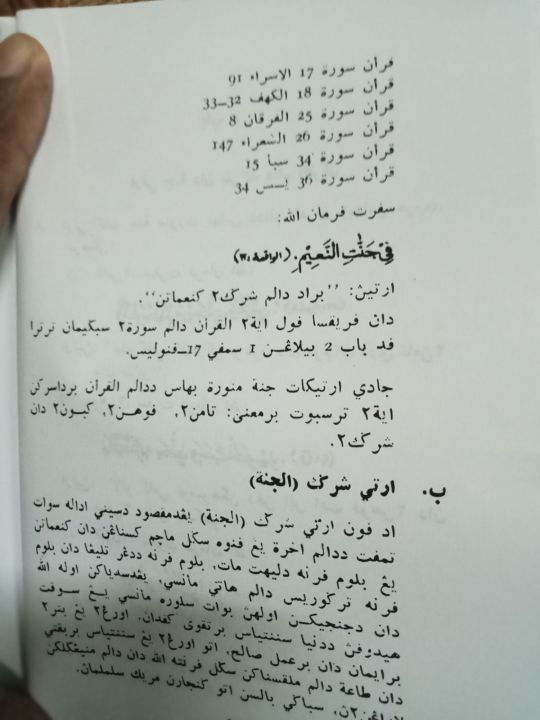 قرأن سورة 17 الاسراء 91
قرأن سورة 18 الكهف 32–33
قرأن سورة 25 الفرقان 8
قرأن سورة 26 الشعراء 147
قرأن سورة 34 سبأ 15
قرأن سورة 36 يسس 34
سفرت فرمان الله:
فِيْ جَنّٰتِ النَّعِيْمِ. (الواقعة،
ارتيڽ: ''براد دالم شرݢ2 كنعماتن''.
دان فريقسا فول اية2 القرأن دالم سورة2 سبݢيمان ترترا
ڤد باب 2 بيلاڠن 1 سمڤي 17–ڤنوليس.
جادي ارتيكات جنة منورة بهاس ددالم القرأن برداسركن
اية2 ترسبوت برمعنى: تامن2، ڤوهن2، كبون2 دان
شرݢ2.
ب. ارتي شرݢ (الجنة)
اد ڤون ارتي شرݢ (الجنة) يڠدمقصود دسيني اداله سوات
تمڤت ددالم اخرة يڠ ڤنوه سݢل ماچم كسناڠن دان كنعماتن
يڠ بلوم ڤرنه دليهت مات، بلوم ڤرنه ددڠر تليڠا دان بلوم
ڤرنه تركوريس دالم هاتي مانسي، يڠدسدياكن اوله الله
دان دجنجيكن اولهڽ بوات سلوره مانسي يڠ سوڤت
هيدوڤڽ ددنيا سننتياس برتقوى كڤدان، اورڠ2 يڠ بنر2
برايمان دان برعمل صالح، اتو اورڠ2 يڠ سننتياس بربقتي
دان طاعة دالم ملقسناكن سݢل ڤرنته الله دان دالم منيڠݢلكن
سباݢي بالسن اتو ݢنجارن مريك سلملمان.